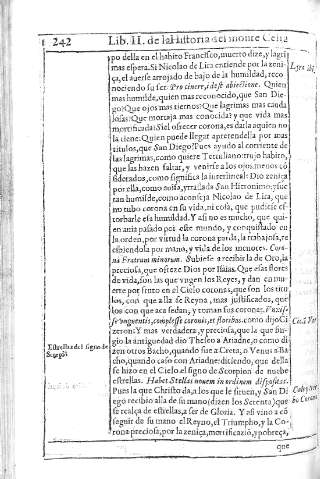 242 Lib. II. de la Historia del monte Celia
po della en el habito Francisco, muerto dize, y lagri
mas espera. Si Nicolao de Lira entiende por la zeni-
ça, el auerse arrojado de bajo de la humildad, reco
nociendo su ser. Pro cinere, idest abiectione. Quien
mas humilde, quien mas reconocido, que San Die-
go? Que ojos mas tiernos? Que lagrimas mas cauda
losas? Que mortaja mas conocida? y que vida mas
mortificada? Si el ofrecer corona, es darla a quien no
la tiene: Quien puede llegar a pretenderla por mas
titulos, que San Diego? Pues ayudo al corriente de
las lagrimas, como quiere Tertuliano trujo habito,
que las hazen saltar, y venirse a los ojos menos co
siderados, como significa la interlineal: Dio zeniça
por ella, como auisa, y traslada San Hieronimo; fue
tan humilde, como aconseja Nicolao de Lira, que
no hubo corona en su vida, ni cosa, que pudiese es-
torbarle esa humildad. Y asi no es mucho, que qui-
en auia pasado por este mundo, y conquistado en
la orden, por virtud la corona parda, la trabajosa, re
cibiendola por mano, y vida de los menores. Coro-
na Fratrum minorum. Subiese a recibir la de Oro, la
preciosa, que ofreze Dios por Isaias. Que esas flores
de vida, son las que vngen los Reyes, y dan en mu-
erte por fruto en el Cielo coronas, que son los titu
los, con que alla se Reyna, mas justificados, que
los con que aca se dan, y toman sus coronas.
se vnguentis, complesse coronis, et floribus. como dijo Ci
zeron: Y mas verdadera, y preciosa, que la que fin-
gio la antiguedad dio Theseo a Ariadne, o como di-
zen otros Bacho, quando fue a Creta, o Venus a Ba-
cho, quando caso con Ariadne: diziendo, que della
se hizo en el Cielo el signo de Scorpion de nuebe
estrellas. Habet Stellas nouem in ordinem dispositas.
Pues la que Christo da, a los que le siruen, y San Di
ego recibio alla de su mano (dizen los Setenta) que
se realça de estrellas, a ser de Gloria. Y asi vino a co
seguir de su mano el Reyno, el Triumpho, y la Co-
rona preciosa, por la zeniça, mortificaciō, y pobreça,
que
Lyra ibi.
Estrellas del signo de
Scorpiō.